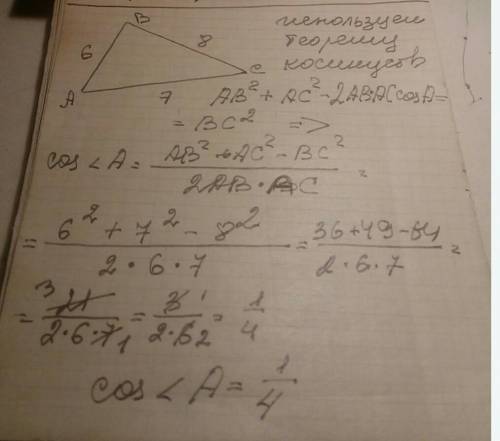 используем
теорему
косинусов
B
6
8
A
C
7
AB² + AC² - 2AB·AC cosA =
= BC² =>
cos∠A = (AB² + AC² - BC²) / (2AB·AC) =
= (6² + 7² - 8²) / (2·6·7) = (36+49-64) / (2·6·7) =
= (21 3) / (2·6·7 1) = (3 1) / (2·6 2) = 1/4
cos∠A = 1/4